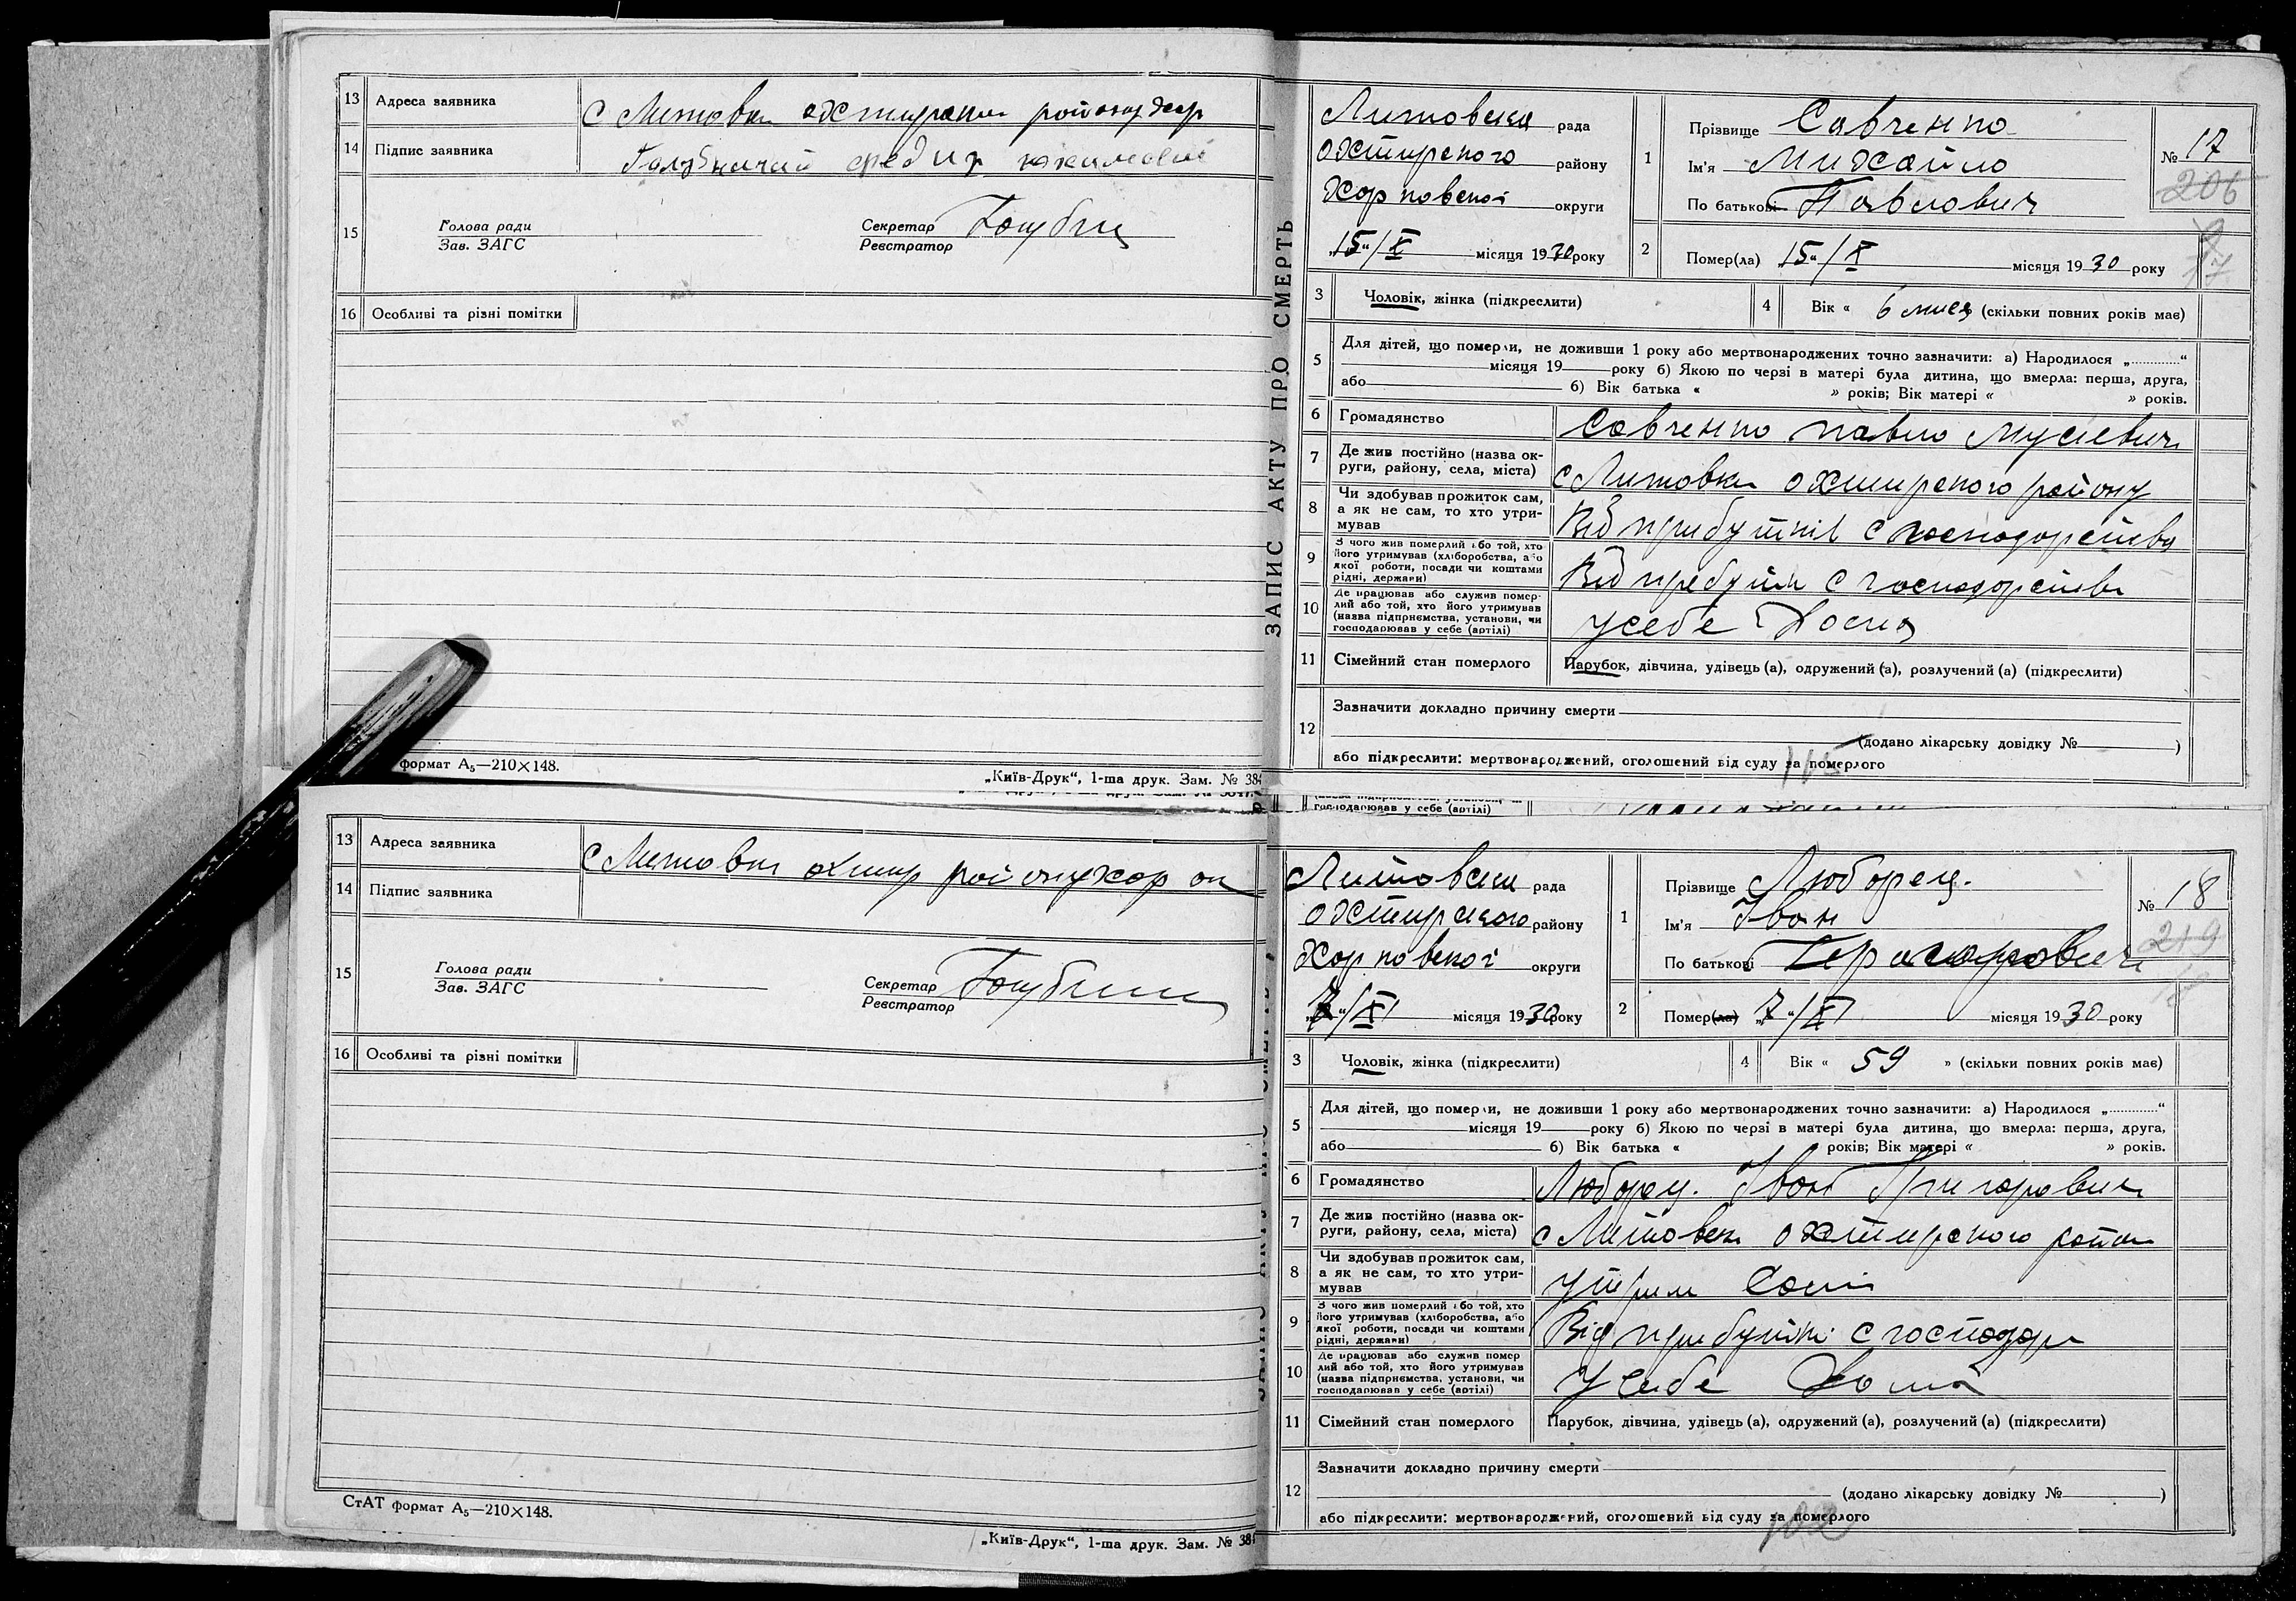 13 Адреса заявника с Литовка охтирськ району хар
14 Підпис заявника
15 Голова ради
Зав. ЗАГС
Секретар
Реєстратор
16 Особливі та різні помітки
формат А₅—210×148.
„Київ-Друк“, 1-ша друк. Зам. № 384
ЗАПИС АКТУ ПРО СМЕРТЬ
Литовська рада
охтирського району
Харковської округи
„15“/X місяця 1930 року
1 Прізвище Савченко
Ім'я Михайло
По батькові Павлович
№ 17
206
17
2 Помер(ла) „15“/X місяця 1930 року
3 Чоловік, жінка (підкреслити)
4 Вік « 6 мисяц (скільки повних років має)
5 Для дітей, що померли, не доживши 1 року або мертвонароджених точно зазначити: а) Народилося „..........“
місяця 19 року б) Якою по черзі в матері була дитина, що вмерла: перша, друга,
або б) Вік батька « » років; Вік матері « » років.
6 Громадянство Савченко Павло Мусієвич
7 Де жив постійно (назва округи, району, села, міста) с Литовка охтирского району
8 Чи здобував прожиток сам, а як не сам, то хто утримував Від прибутків с господарства
9 З чого жив померлий або той, хто його утримував (хліборобства, або якої роботи, посади чи коштами рідні, держави) Від пребутк с господарства
10 Де працював або служив померлий або той, хто його утримував (назва підприємства, установи, чи господарював у себе (артілі) усебе
11 Сімейний стан померлого Парубок, дівчина, удівець (а), одружений (а), розлучений (а) (підкреслити)
12 Зазначити докладно причину смерти
(додано лікарську довідку № )
або підкреслити: мертвонароджений, оголошений від суду за померлого
господарював у себе (артілі)
13 Адреса заявника с Литовка охтир району хар ок
14 Підпис заявника
15 Голова ради
Зав. ЗАГС
Секретар
Реєстратор
16 Особливі та різні помітки
СтАТ формат А₅—210×148.
„Київ-Друк“, 1-ша друк. Зам. № 384
Литовська рада
охтирського району
Харковської округи
„7“/XI місяця 1930 року
1 Прізвище Люборец.
Ім'я Іван
По батькові
№ 18
219
18
2 Помер(ла) „7“/XI місяця 1930 року
3 Чоловік, жінка (підкреслити)
4 Вік « 59 » (скільки повних років має)
5 Для дітей, що померли, не доживши 1 року або мертвонароджених точно зазначити: а) Народилося „..........“
місяця 19 року б) Якою по черзі в матері була дитина, що вмерла: перша, друга,
або б) Вік батька « років; Вік матері « » років.
6 Громадянство Люборец. Іван Григорович
7 Де жив постійно (назва округи, району, села, міста) с Литовка охтирского район
8 Чи здобував прожиток сам, а як не сам, то хто утримував утрим
9 З чого жив померлий або той, хто його утримував (хліборобства, або якої роботи, посади чи коштами рідні, держави) Від прибутків с господар
10 Де працював або служив померлий або той, хто його утримував (назва підприємства, установи, чи господарював у себе (артілі) У себе
11 Сімейний стан померлого Парубок, дівчина, удівець (а), одружений (а), розлучений (а) (підкреслити)
12 Зазначити докладно причину смерти
(додано лікарську довідку № )
або підкреслити: мертвонароджений, оголошений від суду за померлого